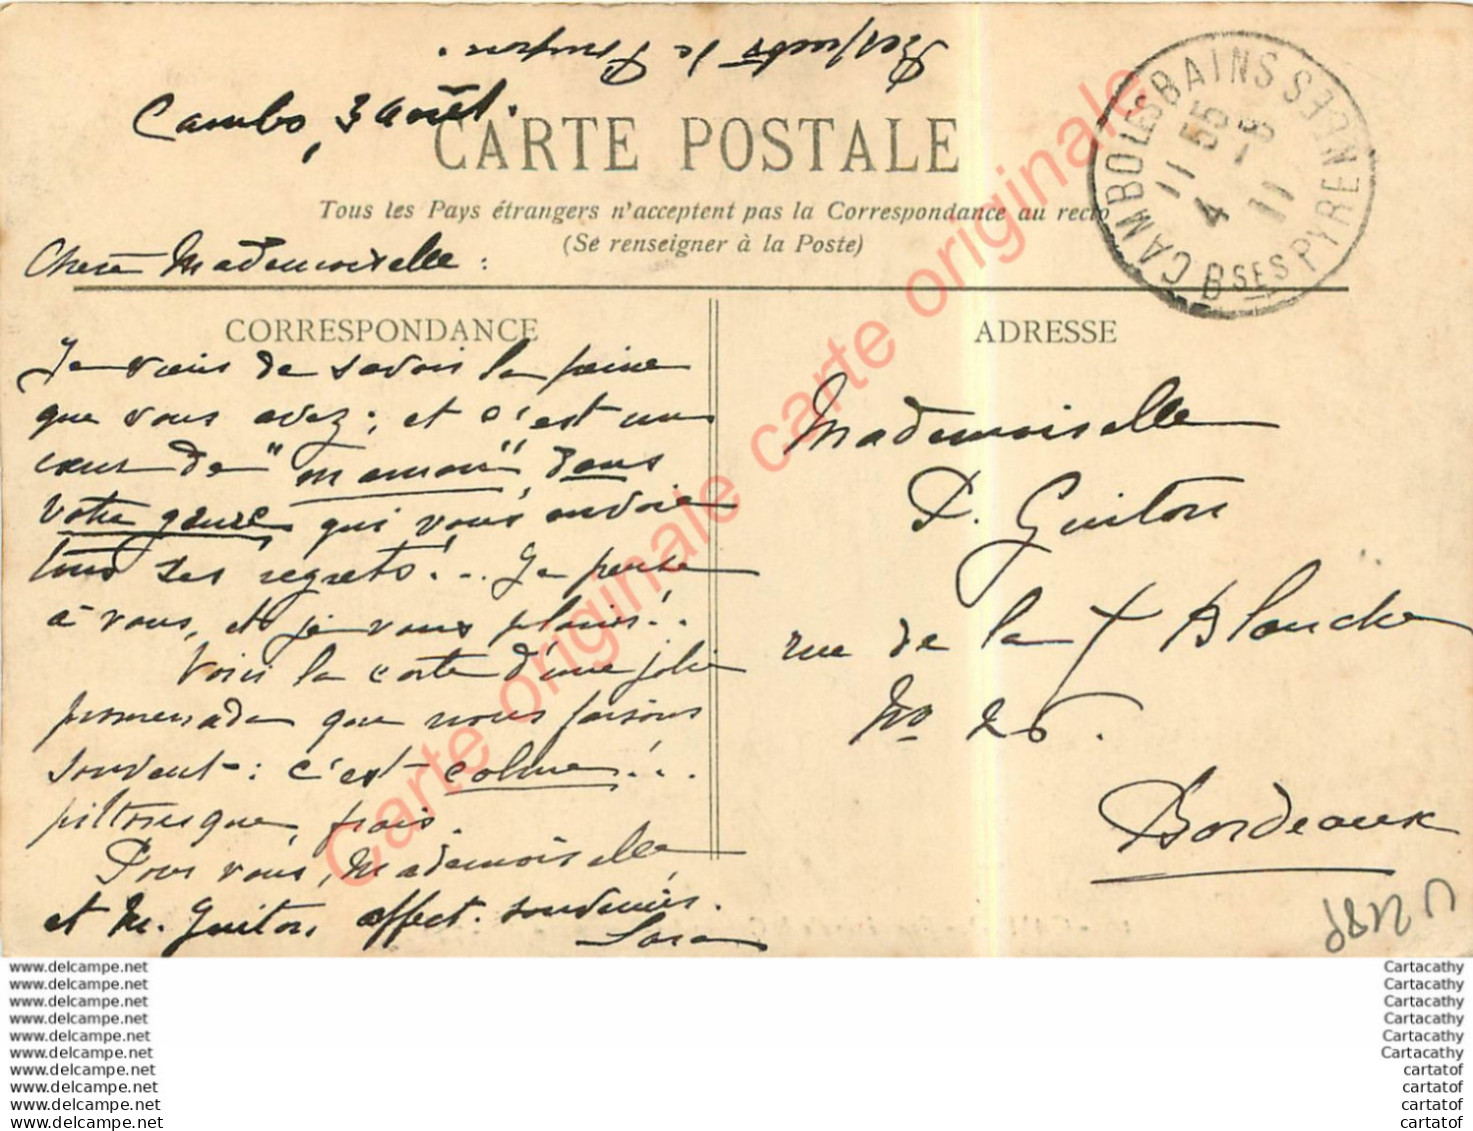 Respects de
Cambo, 3 août.
CARTE POSTALE
Tous les Pays étrangers n'acceptent pas la Correspondance au recto
(Se renseigner à la Poste)
CAMBO LES BAINS
BSES PYRENEES
11 55
4 - 8
11
Chère Mademoiselle :
CORRESPONDANCE
Je viens de savoir la peine
que vous avez ; et c'est un
cœur de "maman", dans
votre genre, qui vous envoie
tous ses regrets ! .. Je pense
à vous, et je vous plains ! ..
Voici la carte d'une jolie
promenade que nous faisons
souvent : c'est calme ! ..
pittoresque, frais.
Pour vous, Mademoiselle,
et M. Guiton, affect. souvenirs.
ADRESSE
Mademoiselle
P. Guiton
rue de la + Blanche
No 26.
Bordeaux
Carte originale carte originale
Carte originale carte originale
www.delcampe.net
www.delcampe.net
www.delcampe.net
www.delcampe.net
www.delcampe.net
www.delcampe.net
www.delcampe.net
www.delcampe.net
www.delcampe.net
www.delcampe.net
Cartacathy
Cartacathy
Cartacathy
Cartacathy
Cartacathy
Cartacathy
cartatof
cartatof
cartatof
cartatof